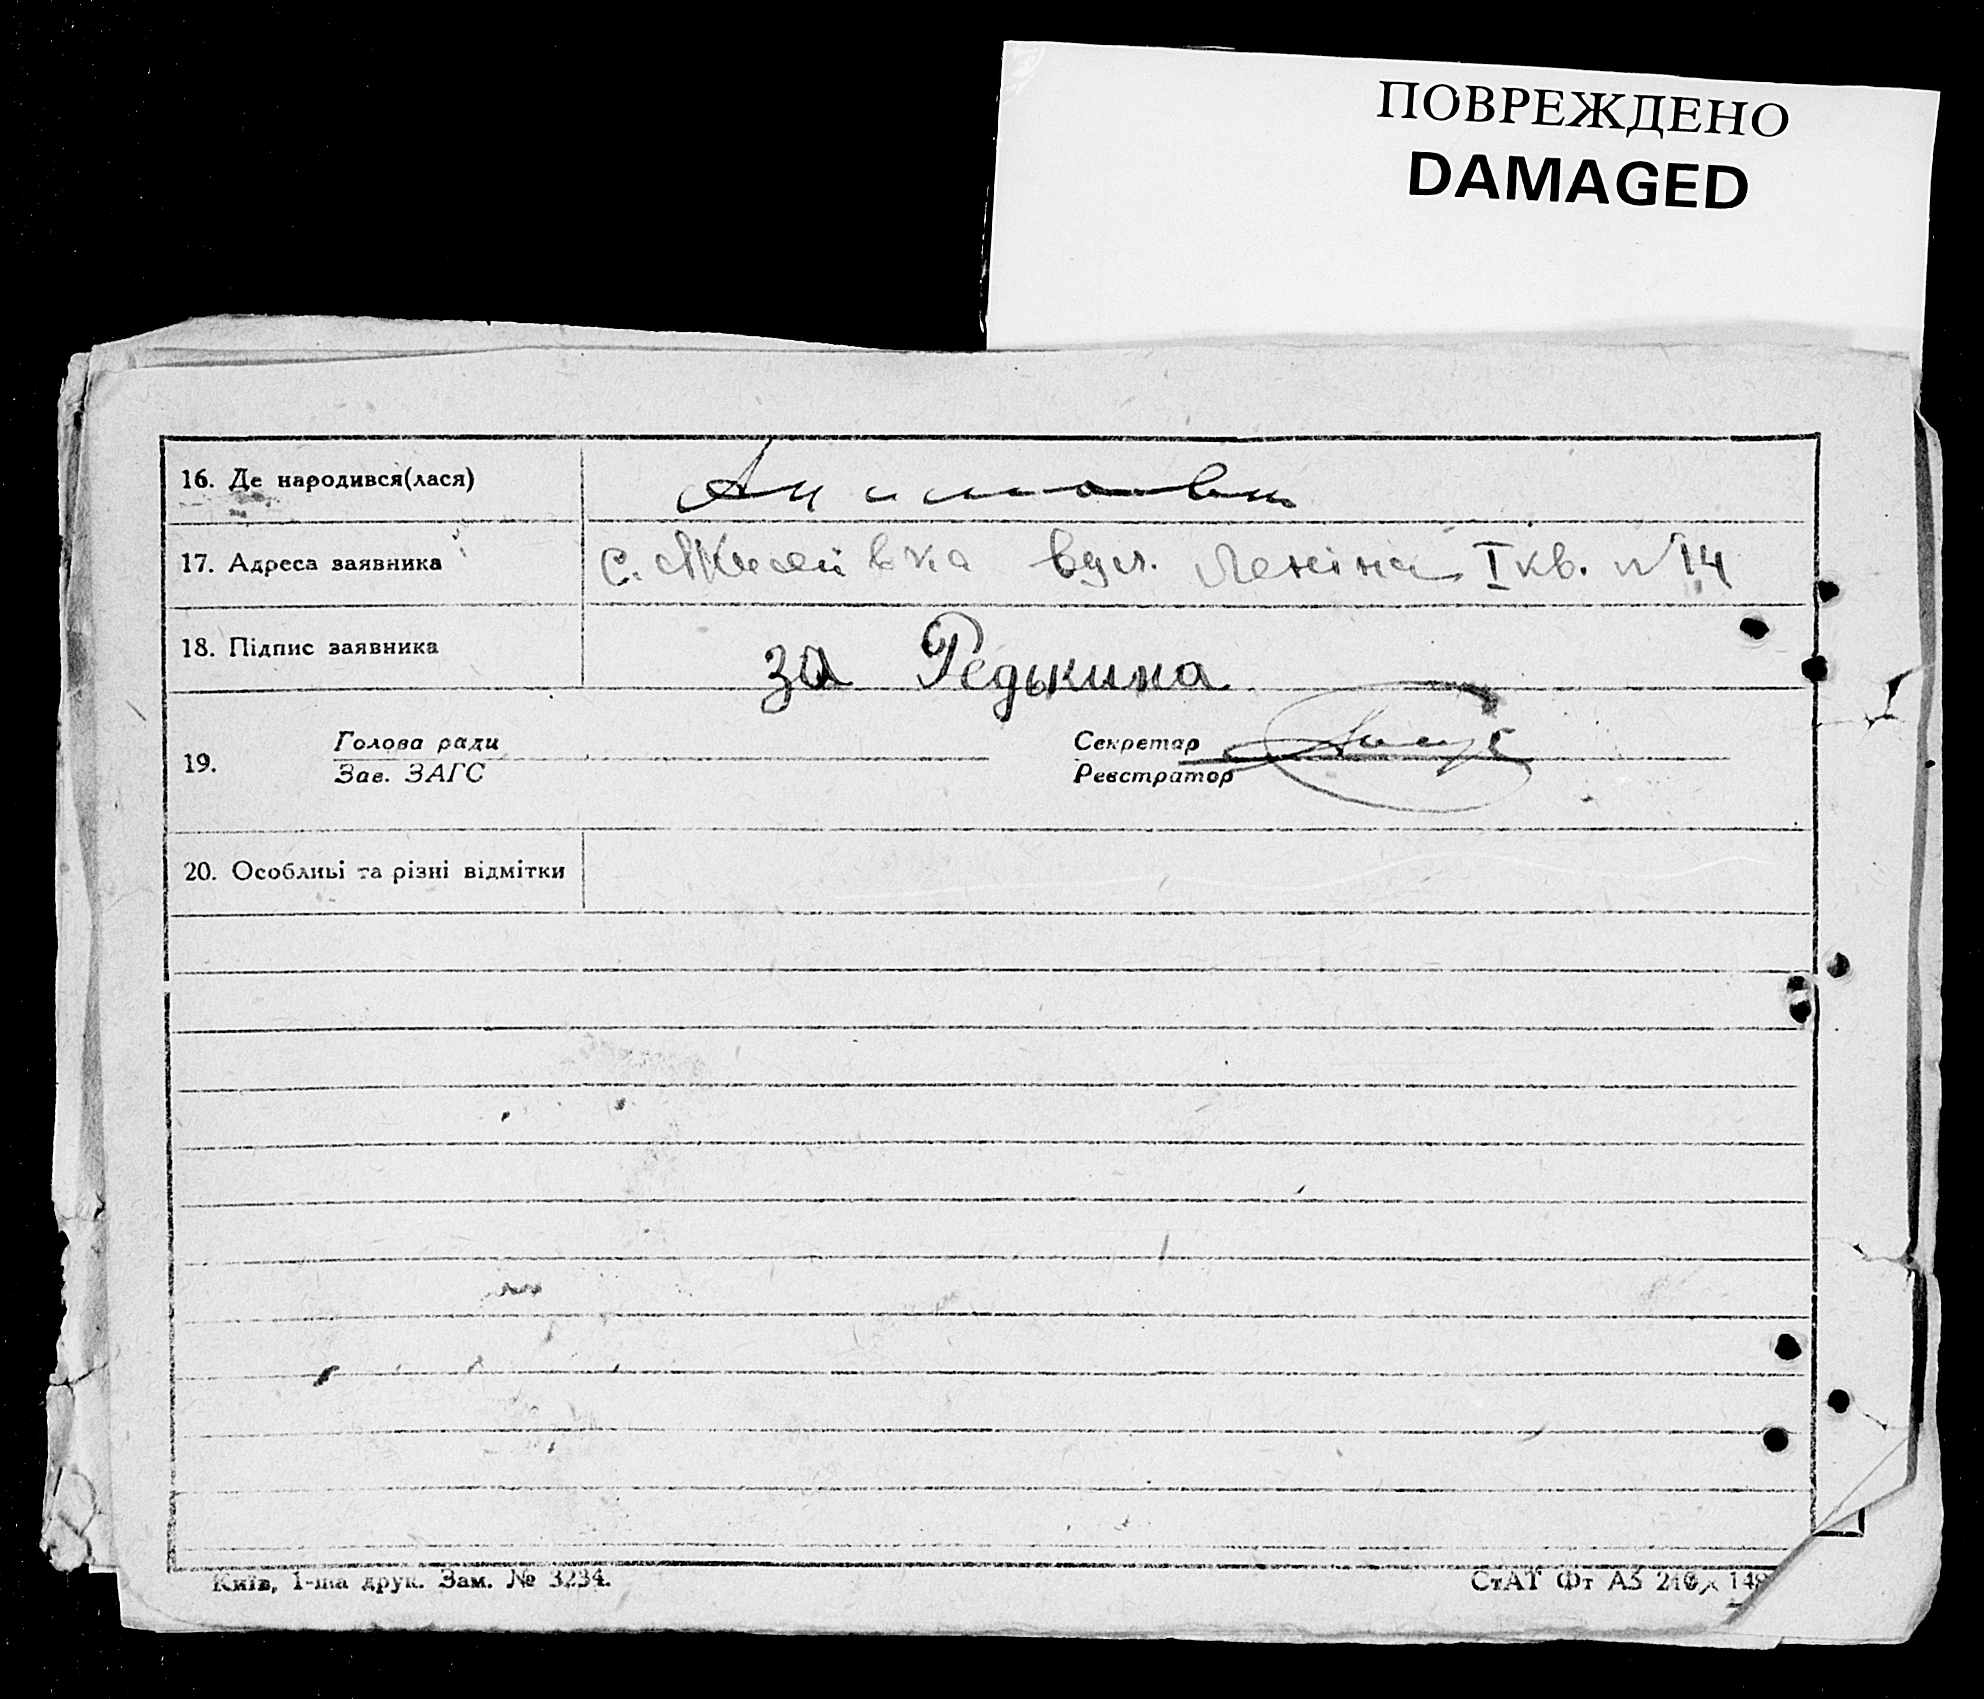 ПОВРЕЖДЕНО
DAMAGED
16. Де народився(лася)
17. Адреса заявника с. вул. Леніна I кв. №14
18. Підпис заявника за Редькина
19. Голова ради Секретар
Зав. ЗАГС Реєстратор
20. Особливі та різні відмітки
Київ, 1-ша друк. Зам. № 3234.
СтАТ Фт А5 210×148